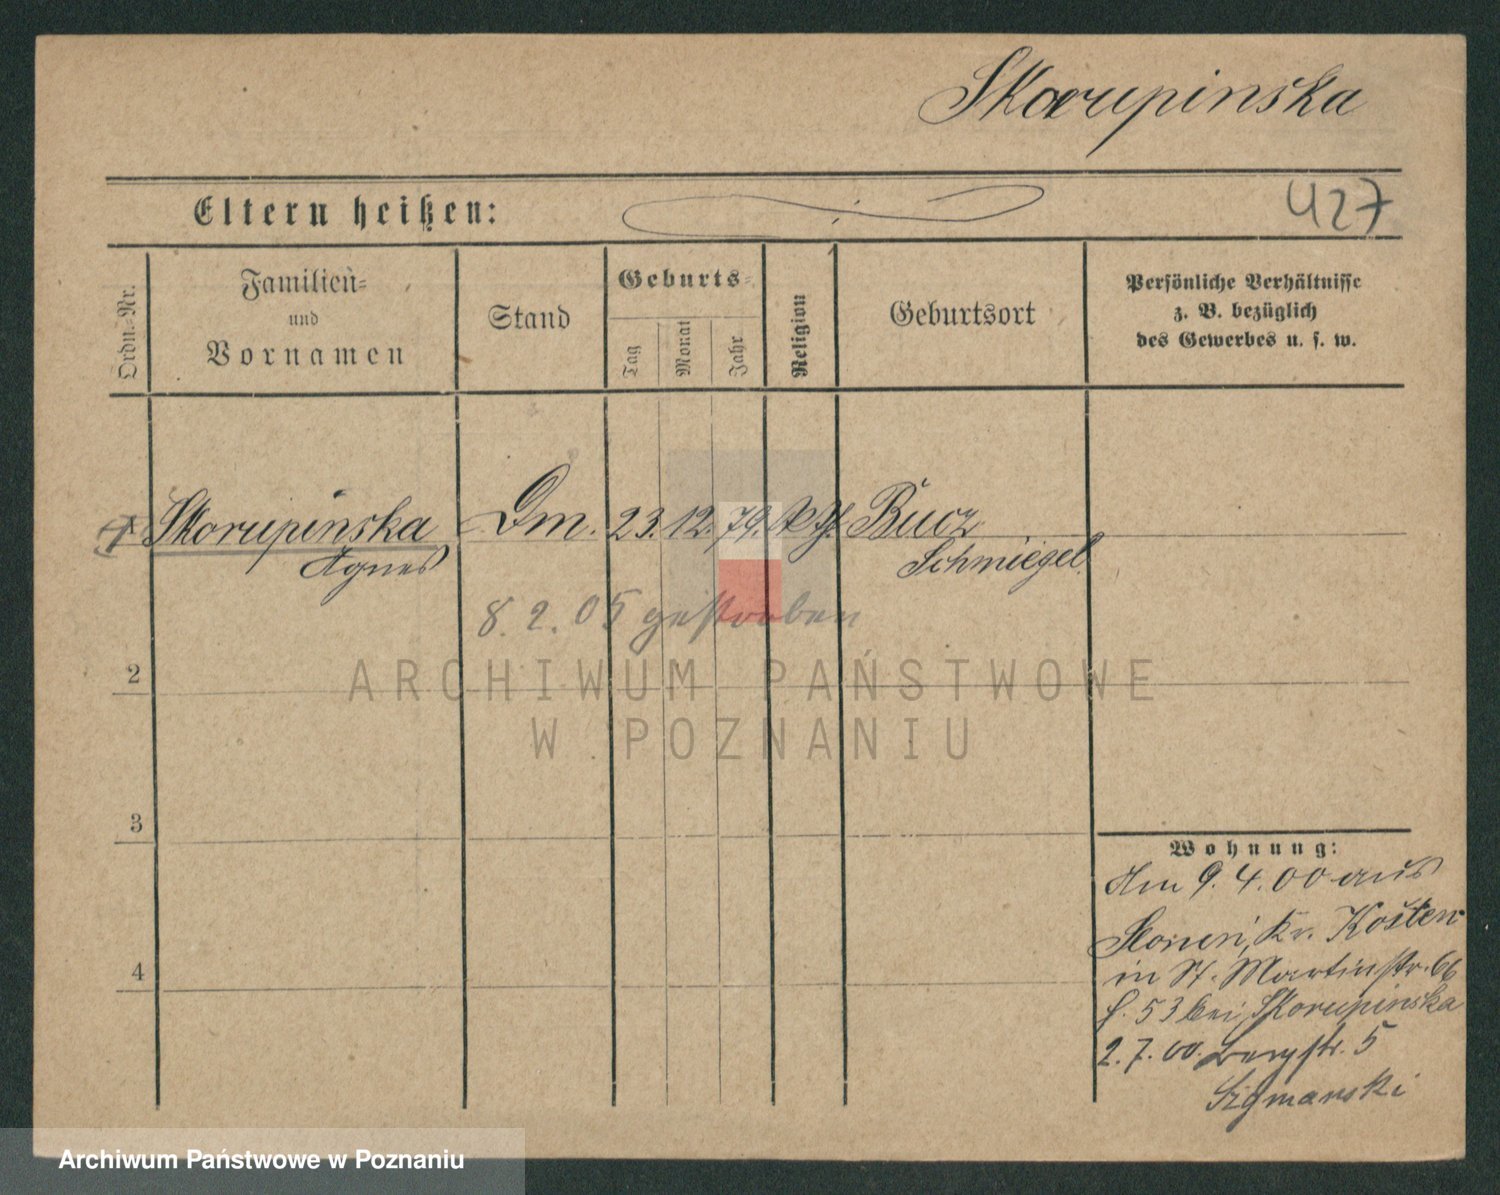 Skorupinska
427
Eltern heißen:
Ordn.-Nr.
Familien-
und
Vornamen
Stand
Geburts-
Tag
Monat
Jahr
Religion
Geburtsort
Persönliche Verhältnisse
z. B. bezüglich
des Gewerbes u. s. w.
Skorupinska
Agnes
Dm.
23. 12. 79.
Bucz
Schmiegel
8. 2. 05 gestorben
2
3
4
Wohnung:
Am 9. 4. 00 aus
Kr. Kosten
in St. Martinstr. 66
53 bei Skorupinska
2. 7. 00. Bergstr. 5
Szymanski
ARCHIWUM PAŃSTWOWE
W POZNANIU
Archiwum Państwowe w Poznaniu